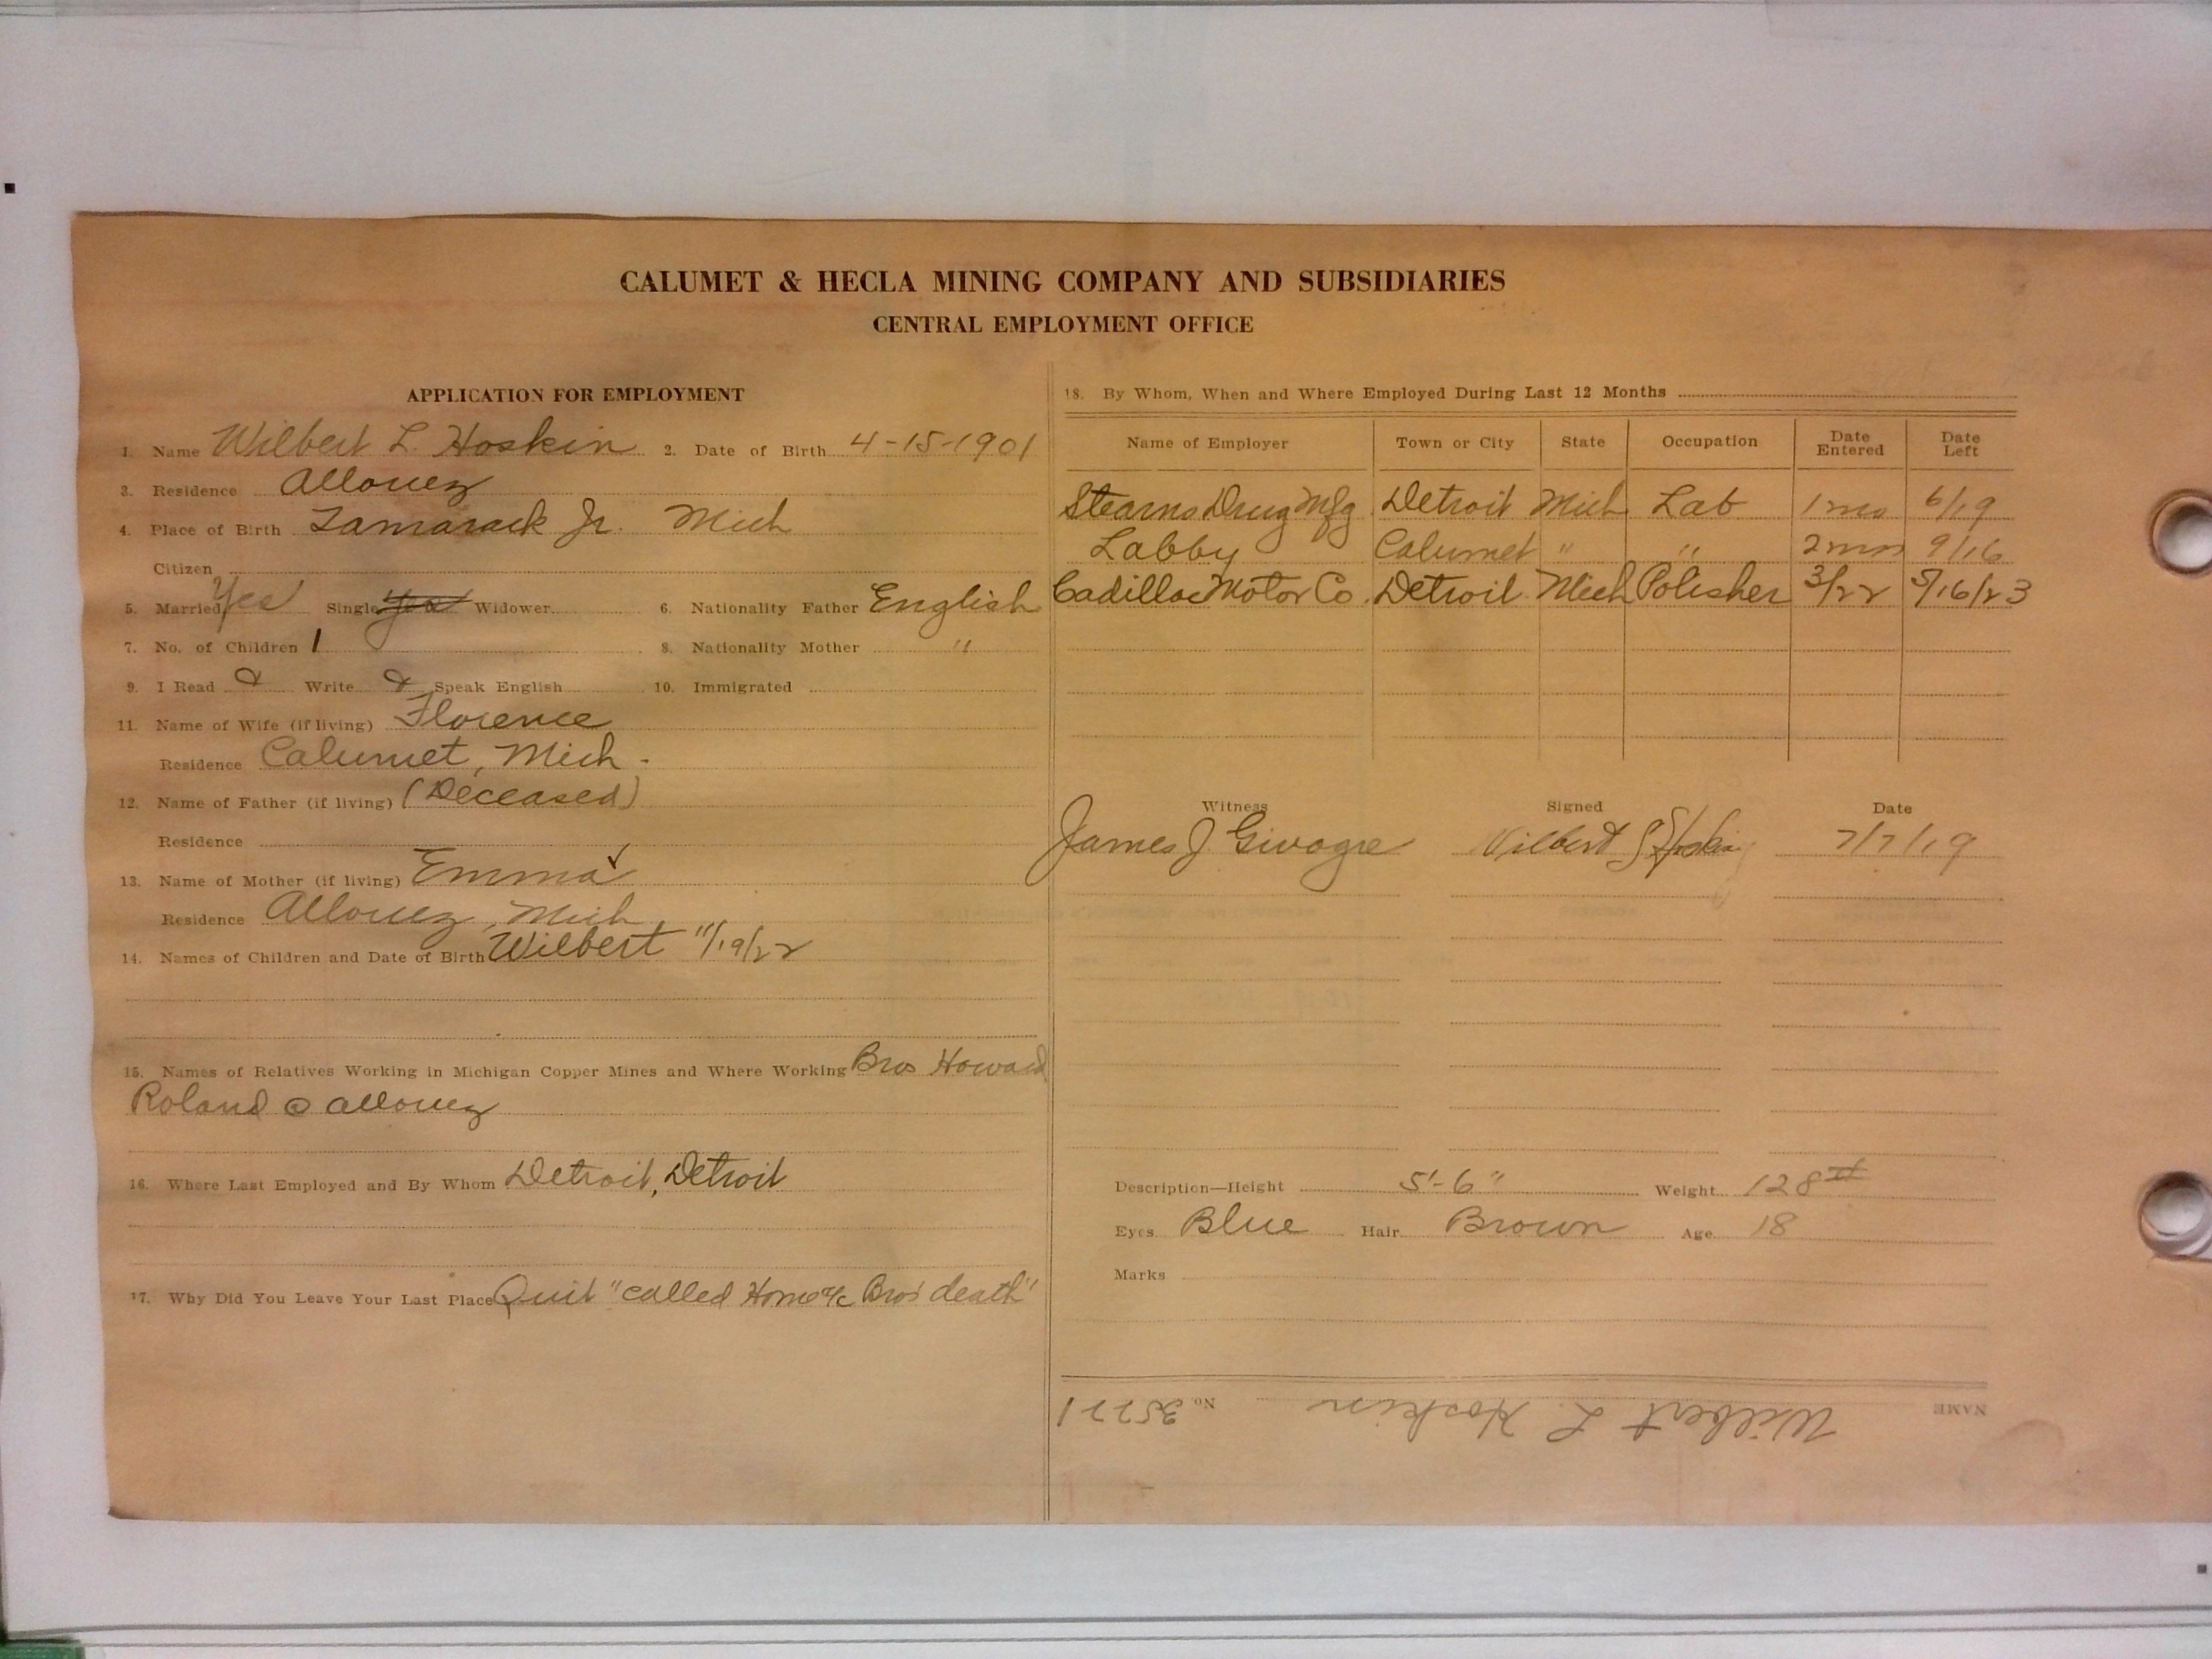 CALUMET & HECLA MINING COMPANY AND SUBSIDIARIES
CENTRAL EMPLOYMENT OFFICE
APPLICATION FOR EMPLOYMENT
1. Name Wilbert L. Hoskin 2. Date of Birth 4-15-1901
3. Residence Allouez
4. Place of Birth Tamarack Jr. Mich
Citizen
5. Married Yes Single Yes Widower
6. Nationality Father English
7. No. of Children 1
8. Nationality Mother "
9. I Read & Write & Speak English 10. Immigrated
11. Name of Wife (if living) Florence
Residence Calumet, Mich.
12. Name of Father (if living) (Deceased)
Residence
13. Name of Mother (if living) Emma ✓
Residence Allouez, Mich
14. Names of Children and Date of Birth Wilbert 11/19/22
15. Names of Relatives Working in Michigan Copper Mines and Where Working Bros Howard
Roland @ Allouez
16. Where Last Employed and By Whom Detroit, Detroit
17. Why Did You Leave Your Last Place Quit "called Home a/c Bros' death"
18. By Whom, When and Where Employed During Last 12 Months
Name of Employer Town or City State Occupation Date Entered Date Left
Stearns Drug Mfg. Detroit Mich Lab 1 mo 6/19
Labby Calumet " " 2 mos 9/16
Cadillac Motor Co. Detroit Mich Polisher 3/22 5/16/23
Witness Signed Date
James J Givogre Wilbert L Hoskin 7/7/19
Description—Height 5'-6" Weight 128 #
Eyes Blue Hair Brown Age 18
Marks
NAME Wilbert L. Hoskin No. 35771